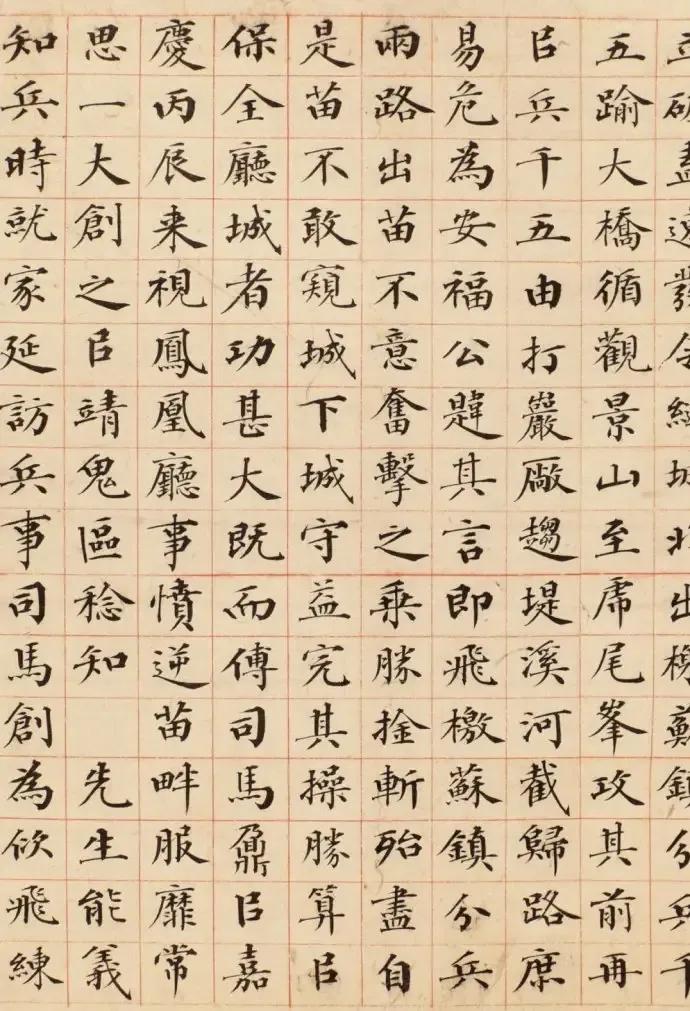 出分兵千
五踰大橋循觀景山至虎尾峯攻其前再
㠯兵千五由打巖厰趨堤溪河截歸路庶
易危為安福公韙其言即飛檄蘇鎮分兵
兩路出苗不意奮擊之乗勝擒斬殆盡自
是苗不敢窺城下城守益完其操勝算㠯
保全廳城者功甚大既而傅司馬鼐㠯嘉
慶丙辰来視鳳凰廳事憤逆苗畔服靡常
思一大創之㠯靖鬼區稔知 先生能義
知兵時就家延訪兵事司馬創為佽飛練